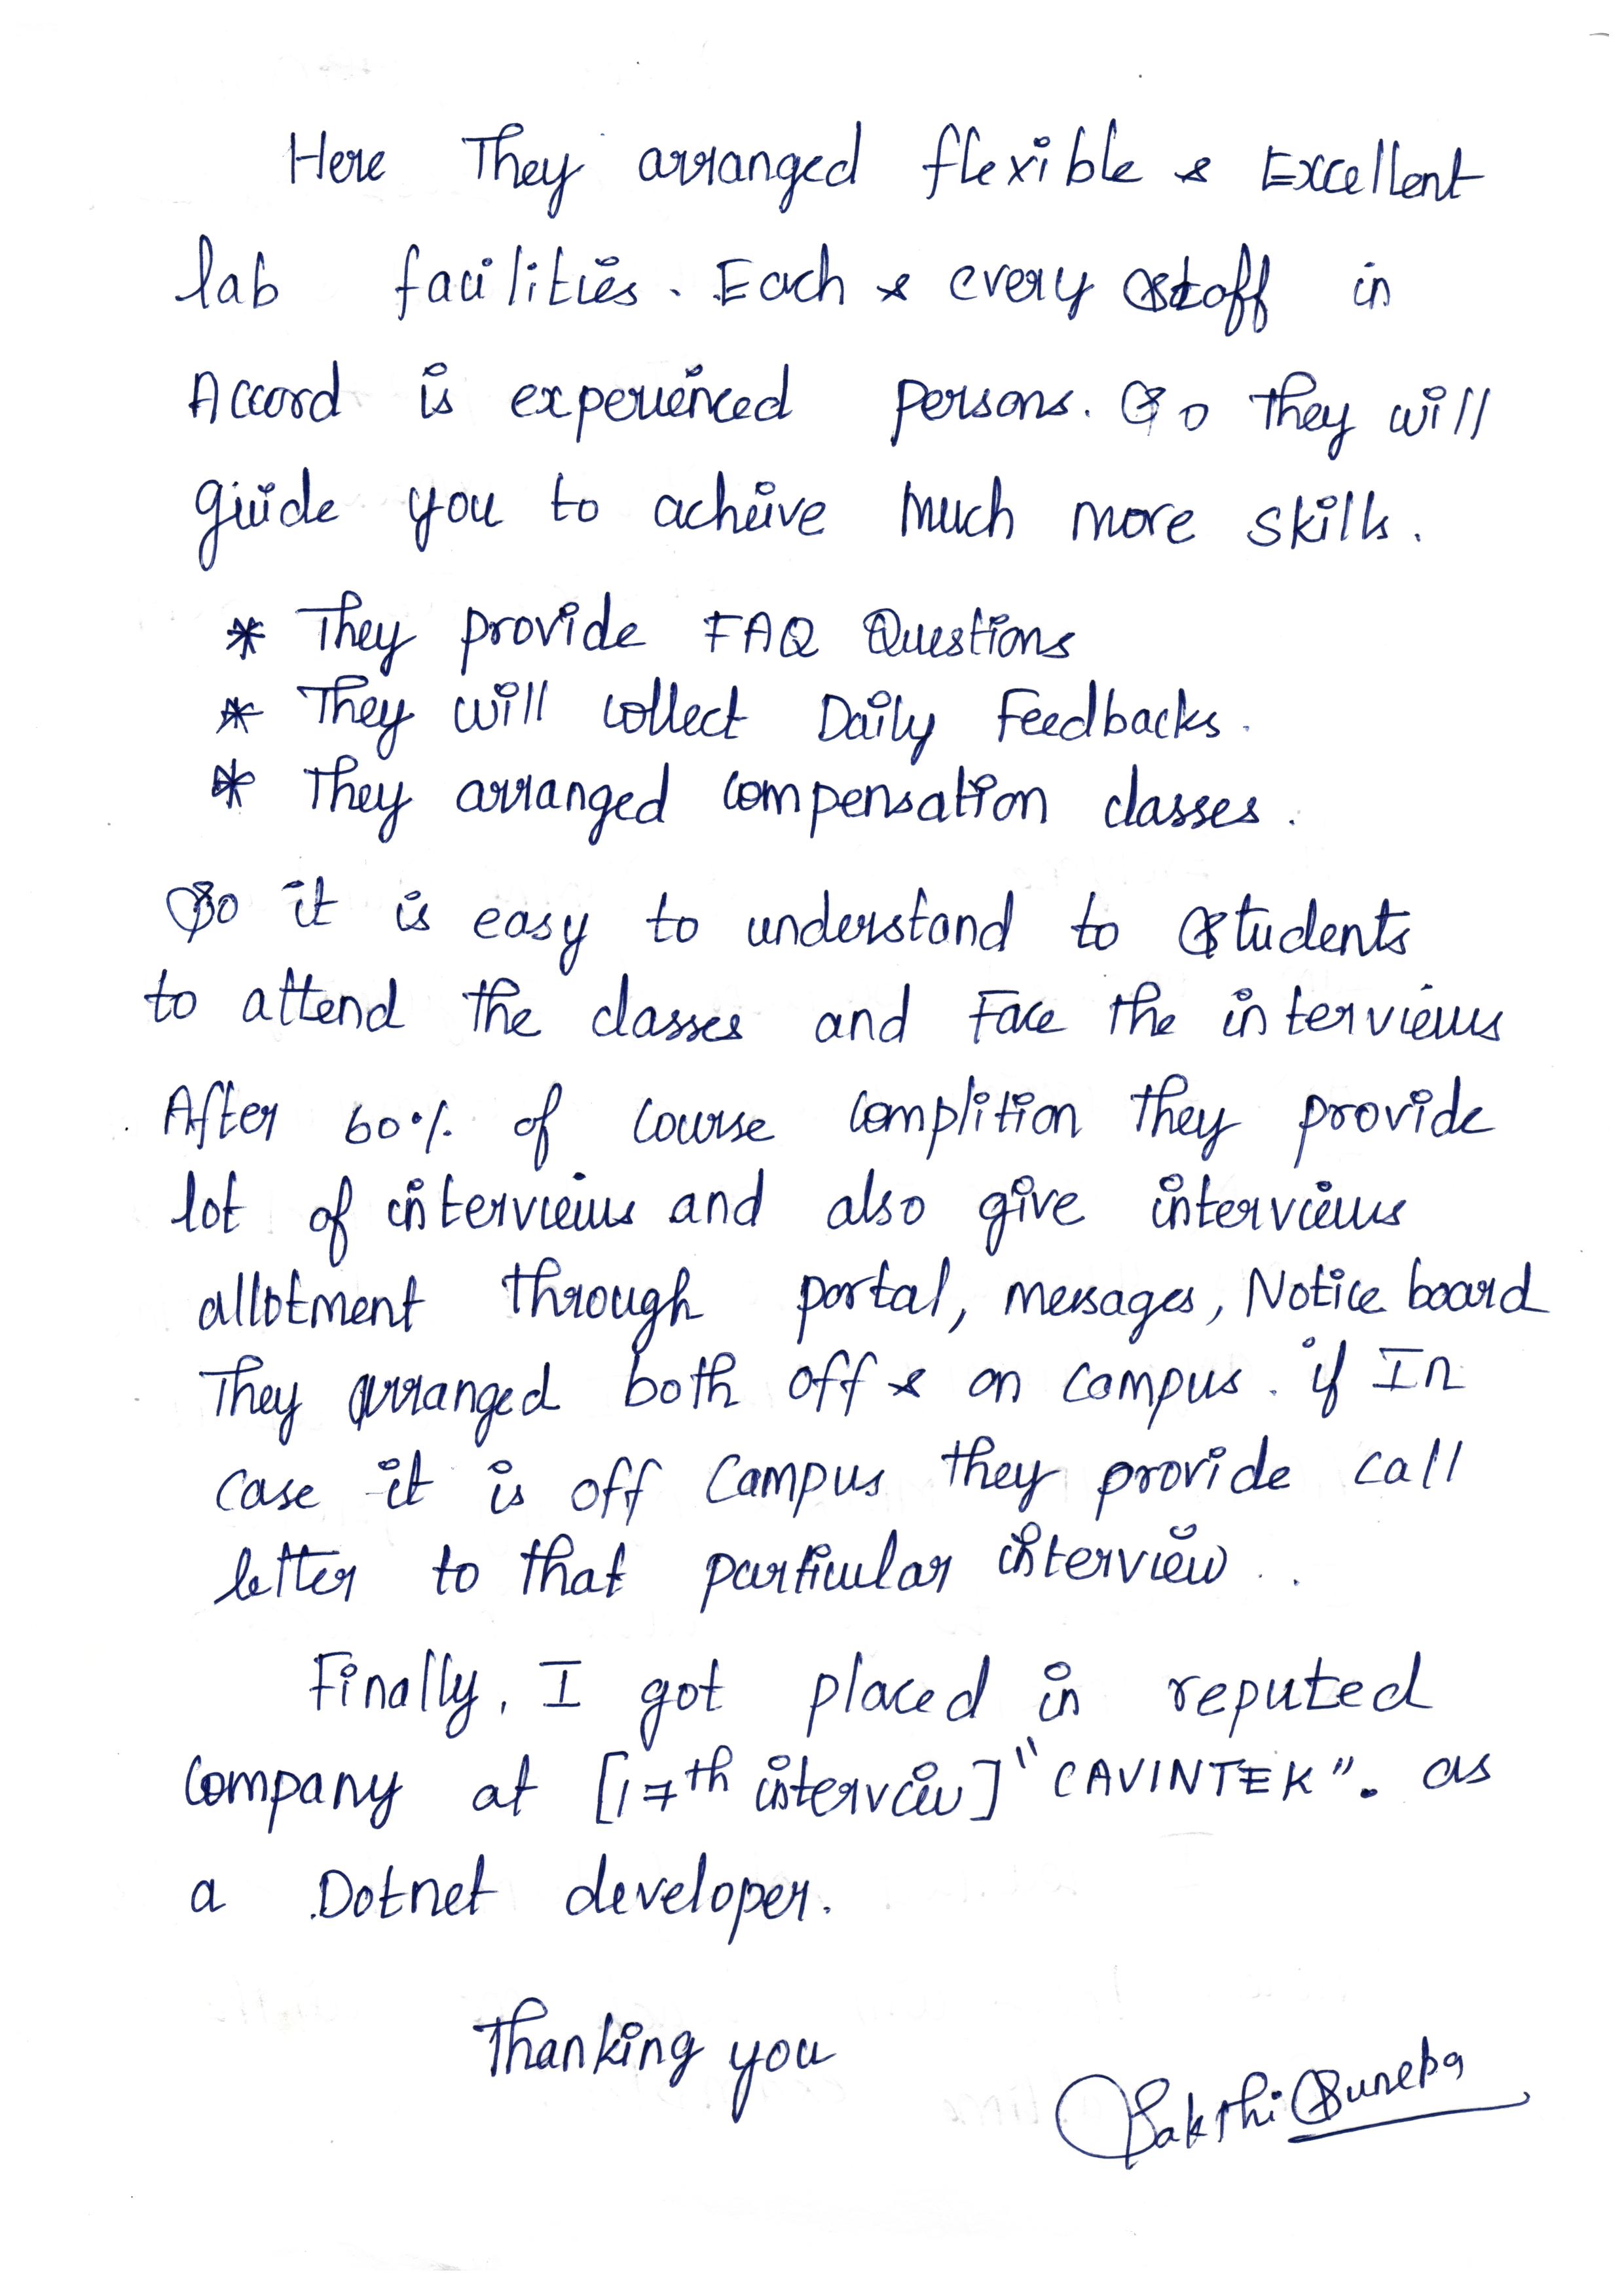 Here They arranged flexible & Excellent
lab facilities. Each & every staff in
Accord is experienced persons. So they will
guide you to acheive much more skills.
* They provide FAQ Questions
* They will collect Daily Feedbacks.
* They arranged compensation classes.
So it is easy to understand to students
to attend the classes and Face the interviews
After 60% of course complition they provide
lot of interviews and also give interviews
allotment through portal, messages, Notice board
They arranged both off & on campus. if In
case it is off campus they provide call
letter to that particular interview.
Finally, I got placed in reputed
company at [17th interview] "CAVINTEK". as
a Dotnet developer.
Thanking you
Sakthi